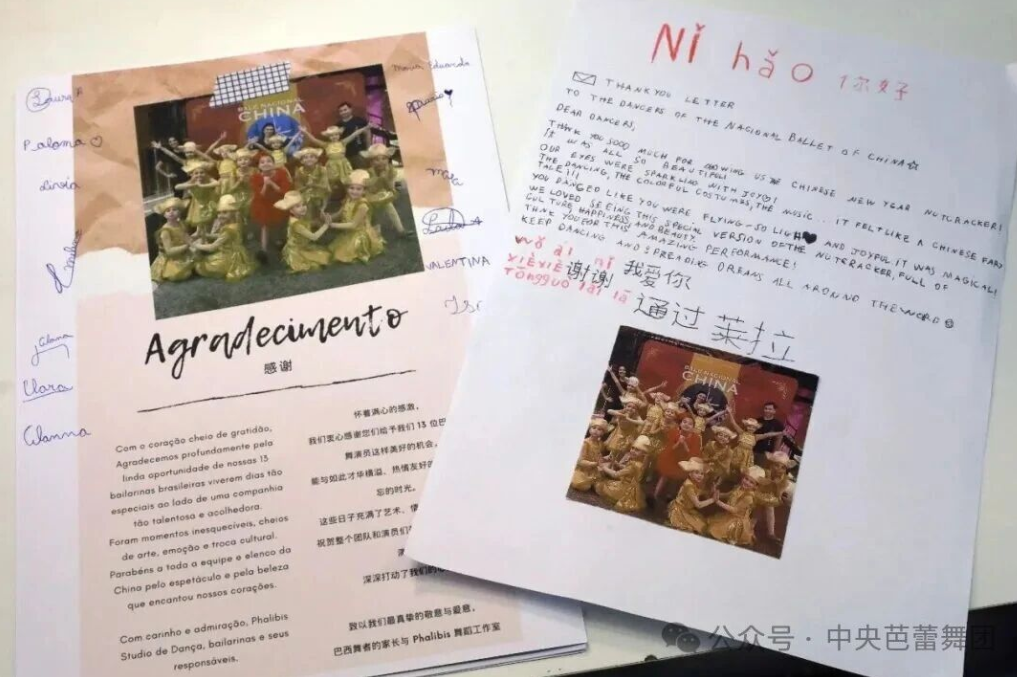 Laura
Paloma
Lívia
Alana
Clara
Alanna
Maria Eduarda
Mila
VALENTINA
BALÉ NACIONAL
CHINA
Agradecimento
感谢
Com o coração cheio de gratidão,
Agradecemos profundamente pela
linda oportunidade de nossas 13
bailarinas brasileiras viverem dias tão
especiais ao lado de uma companhia
tão talentosa e acolhedora.
Foram momentos inesquecíveis, cheios
de arte, emoção e troca cultural.
Parabéns a toda a equipe e elenco da
China pelo espetáculo e pela beleza
que encantou nossos corações.
Com carinho e admiração, Phalibis
Studio de Dança, bailarinas e seus
responsáveis.
怀着满心的感激，
我们衷心感谢您们给予我们 13 位巴
舞演员这样美好的机会，
能与如此才华横溢、热情友好的
忘的时光。
这些日子充满了艺术、情
祝贺整个团队和演员们
深深打动了我们的
致以我们最真挚的敬意与爱意，
巴西舞者的家长与 Phalibis 舞蹈工作室
Nǐ hǎo 你好
THANK YOU LETTER
TO THE DANCERS OF THE NACIONAL BALLET OF CHINA
DEAR DANCERS,
THANK YOU SOOO MUCH FOR SHOWING US CHINESE NEW YEAR NUTCRACKER!
IT WAS ALL SO BEAUTIFUL!
OUR EYES WERE SPARKLING WITH JOY!
THE DANCING, THE COLORFUL COSTUMES, THE MUSIC... IT FELT LIKE A CHINESE FAIRY
TALE!!!
YOU DANCED LIKE YOU WERE FLYING - SO LIGHT AND JOYFUL IT WAS MAGICAL!
WE LOVED SEEING THIS SPECIAL VERSION OF THE NUTCRACKER, FULL OF
CULTURE, HAPPINESS, AND BEAUTY
THANK YOU FOR THIS AMAZING PERFORMANCE!
KEEP DANCING AND SPREADING DREAMS ALL AROUND THE WORLD
wǒ ài nǐ
XIÈXIÈ 谢谢 我爱你
Tōngguò lái lā
通过 莱拉
BALÉ NACIONAL
CHINA
公众号 · 中央芭蕾舞团